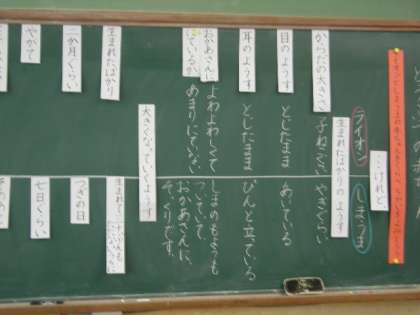 けれど、
ライオン
しまうま
生まれたばかりのようす
からだの大きさ
子ねこぐらい
やぎぐらい
目のようす
とじたまま
あいている
耳のようす
とじたまま
ぴんと立っている
おかあさんに
にているか
よわよわしくて
あまりにていない
しまのもようも
ついていて
おかあさんに、
そっくりです。
大きくなっていくようす
生まれたばかり
生まれて
二か月ぐらい
つぎの日
やがて
七日ぐらい